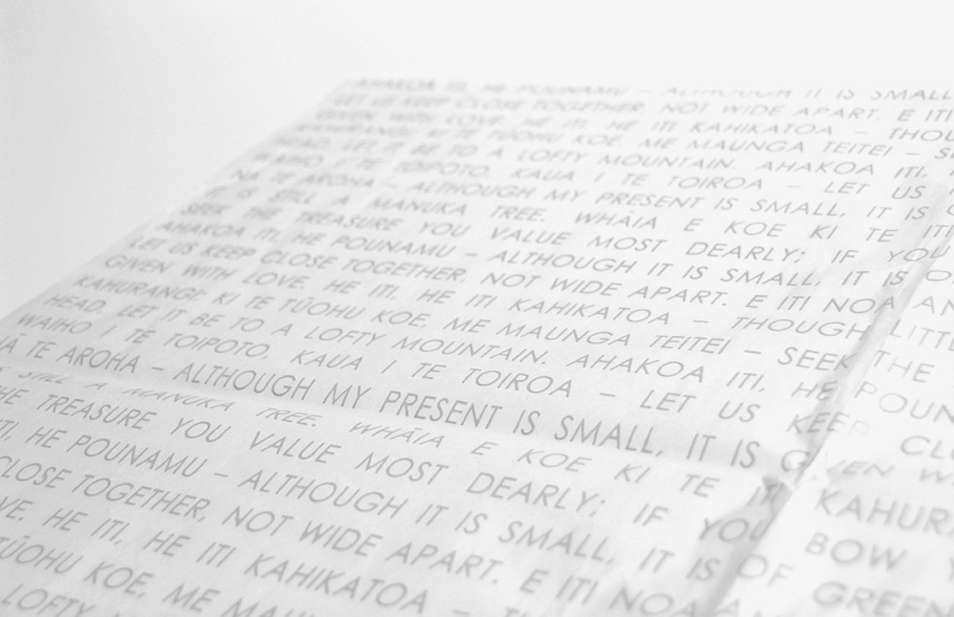 AHAKOA ITI, HE POUNAMU – ALTHOUGH IT IS SMALL
LET US KEEP CLOSE TOGETHER, NOT WIDE APART. E ITI
GIVEN WITH LOVE. HE ITI, HE ITI KAHIKATOA – THOU
KAHURANGI; KI TE TŪOHU KOE, ME MAUNGA TEITEI – S
HEAD, LET IT BE TO A LOFTY MOUNTAIN. AHAKOA ITI,
WAIHO I TE TOIPOTO, KAUA I TE TOIROA – LET US
NA TE AROHA – ALTHOUGH MY PRESENT IS SMALL, IT IS G
IT IS STILL A MANUKA TREE. WHĀIA E KOE KI TE ITI
SEEK THE TREASURE YOU VALUE MOST DEARLY; IF YOU
AHAKOA ITI, HE POUNAMU – ALTHOUGH IT IS SMALL, IT IS O
LET US KEEP CLOSE TOGETHER, NOT WIDE APART. E ITI NOA AN
GIVEN WITH LOVE. HE ITI, HE ITI KAHIKATOA – THOUGH LITTL
KAHURANGI; KI TE TŪOHU KOE, ME MAUNGA TEITEI – SEEK THE
HEAD, LET IT BE TO A LOFTY MOUNTAIN. AHAKOA ITI, HE POUN
WAIHO I TE TOIPOTO, KAUA I TE TOIROA – LET US KEEP CLO
Ā TE AROHA – ALTHOUGH MY PRESENT IS SMALL, IT IS GIVEN W
S STILL A MANUKA TREE. WHĀIA E KOE KI TE ITI KAHURA
HE TREASURE YOU VALUE MOST DEARLY; IF YOU BOW Y
TI, HE POUNAMU – ALTHOUGH IT IS SMALL, IT IS OF GREEN
CLOSE TOGETHER, NOT WIDE APART. E ITI NOA A
VE. HE ITI, HE ITI KAHIKATOA – TH
TŪOHU KOE, ME MAU
LOFTY